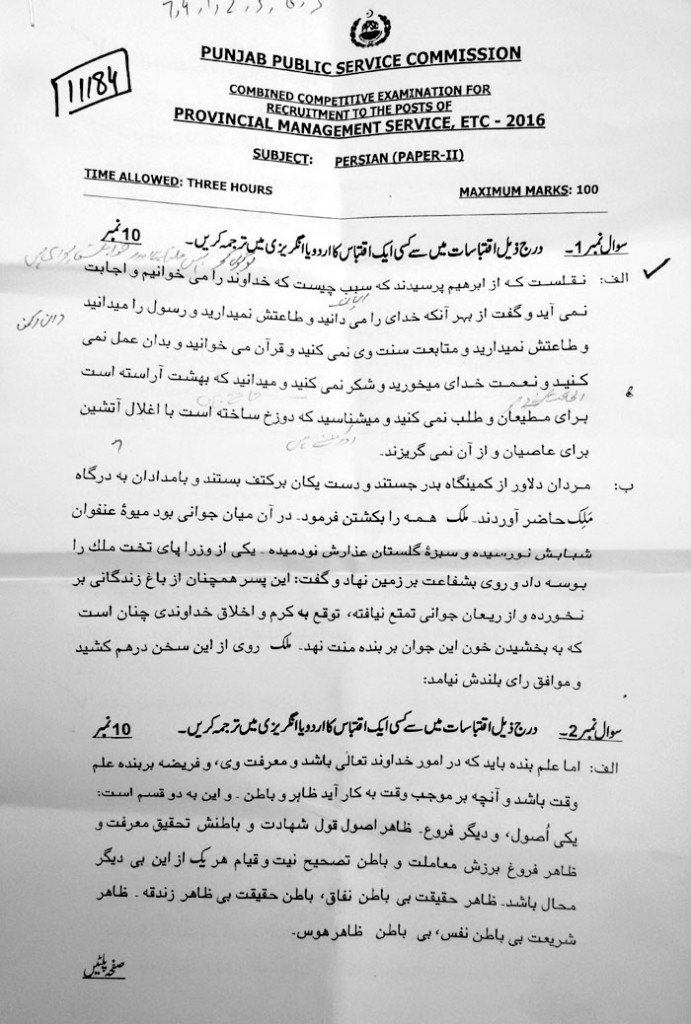 11184
PUNJAB PUBLIC SERVICE COMMISSION
COMBINED COMPETITIVE EXAMINATION FOR
RECRUITMENT TO THE POSTS OF
PROVINCIAL MANAGEMENT SERVICE, ETC - 2016
SUBJECT: PERSIAN (PAPER-II)
TIME ALLOWED: THREE HOURS MAXIMUM MARKS: 100
سوال نمبر 1۔ درج ذیل اقتباسات میں سے کسی ایک اقتباس کا اردو یا انگریزی میں ترجمہ کریں۔ 10 نمبر
الف: نقلست که از ابرهیم پرسیدند که سبب چیست که خداوند را می خوانیم و اجابت
نمی آید و گفت از بهر آنکه خدای را می دانید و طاعتش نمیدارید و رسول را میدانید
و طاعتش نمیدارید و متابعت سنت وی نمی کنید و قرآن می خوانید و بدان عمل نمی
کنید و نعمت خدای میخورید و شکر نمی کنید و میدانید که بهشت آراسته است
برای مطیعان و طلب نمی کنید و میشناسید که دوزخ ساخته است با اغلال آتشین
برای عاصیان و از آن نمی گریزند.
ب: مردان دلاور از کمینگاه بدر جستند و دست یکان برکتف بستند و بامدادان به درگاه
مَلِک حاضر آوردند۔ ملک همه را بکشتن فرمود۔ در آن میان جوانی بود میوۀ عنفوان
شبابش نورسیده و سبزۀ گلستان عذارش نودمیده ۔ یکی از وزرا پای تخت ملك را
بوسه داد و روی بشفاعت بر زمین نهاد و گفت: این پسر همچنان از باغ زندگانی بر
نخورده و از ریعان جوانی تمتع نیافته، توقع به کرم و اخلاق خداوندی چنان است
که به بخشیدن خون این جوان بر بنده منت نهد۔ ملک روی از این سخن درهم کشید
و موافق رای بلندش نیامد:
سوال نمبر 2۔ درج ذیل اقتباسات میں سے کسی ایک اقتباس کا اردو یا انگریزی میں ترجمہ کریں۔ 10 نمبر
الف: اما علم بنده باید که در امور خداوند تعالٰی باشد و معرفت وی، و فریضه بربنده علم
وقت باشد و آنچه بر موجب وقت به کار آید ظاهر و باطن ۔ و این به دو قسم است:
یکی اُصول، و دیگر فروع۔ ظاهر اصول قول شهادت و باطنش تحقیق معرفت و
ظاهر فروغ برزش معاملت و باطن تصحیح نیت و قیام هر یک از این بی دیگر
محال باشد۔ ظاهر حقیقت بی باطن نفاق، باطن حقیقت بی ظاهر زندقه ۔ ظاهر
شریعت بی باطن نفس، بی باطن ظاهر هوس۔
صفحہ پلٹیں